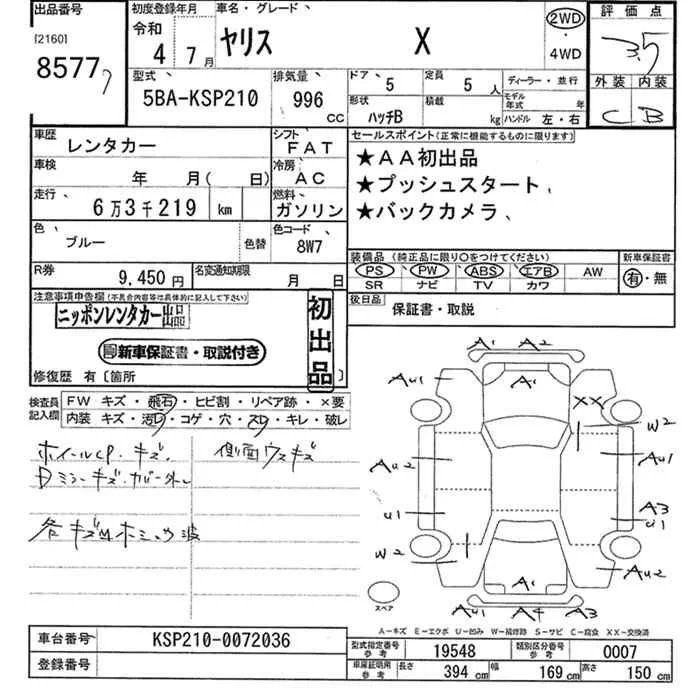 出品番号
[2160]
8577
初度登録年月
令和
4 7月
車名・グレード、
ヤリス X
2WD
・
4WD
評価点
3.5
外装 内装
C B
型式、
5BA-KSP210
排気量、
996
CC
ドア、
5
定員
5
人
形状
ハッチB
積載
kg
ディーラー・並行
モデル
年式 年
ハンドル 左・右
車歴
レンタカー
シフト
FAT
車検
年 月( 日)
冷房
AC
走行、
6万3千219 km
燃料、
ガソリン
色、
ブルー
色替
色コード、
8W7
R券
9,450円
名変通知期限
月 日
セールスポイント(正常に機能するものに限ります)
★AA初出品
★プッシュスタート、
★バックカメラ、
装備品(純正品に限り○をつけてください)
PS PW ABS エアB AW
SR ナビ TV カワ
新車保証書
有・無
後日品
保証書・取説
注意事項申告欄(不具合内容等は具体的に記入して下さい)
ニッポンレンタカー出品
新車保証書・取説付き
初出品
修復歴 有〔箇所 〕
検査員
記入欄
FW キズ・飛石・ヒビ割・リペア跡・×要
内装 キズ・汚レ・コゲ・穴・スレ・キレ・破レ
ホイールCP.キズ.
Dミラーキズ.カバー外レ
側面ウスキズ
A1 A2
AU1
A1
XX
W2
AU2
AU1
U1
A3
U1
W2
AU2
A1
AU1 A4 A3
スペア
A-キズ E-エクボ U-凹み W-補修跡 S-サビ C-腐食 XX-交換済
車台番号
KSP210-0072036
登録番号
型式指定番号
参考
19548
類別区分番号
参考
0007
車庫証明用
参考
長さ
394 cm
幅
169 cm
高さ
150 cm